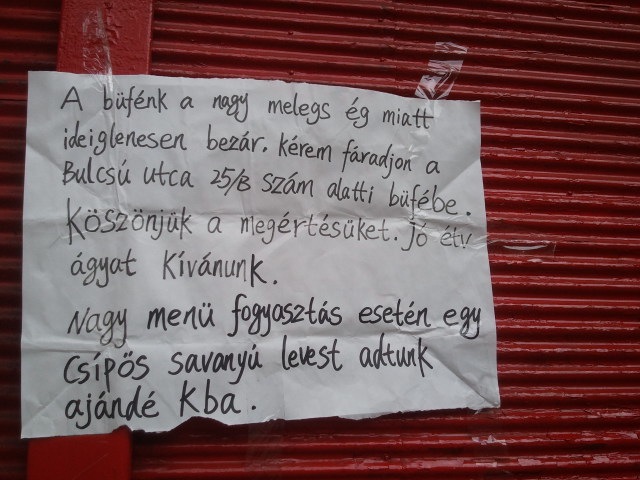 A büfénk a nagy melegs ég miatt
ideiglenesen bezár. kérem fáradjon a
Bulcsú utca 25/B szám alatti büfébe.
Köszönjük a megértésüket. Jó étv
ágyat Kívánunk.
Nagy menü fogyosztás esetén egy
Csípős savanyú levest adtunk
ajándé kba.